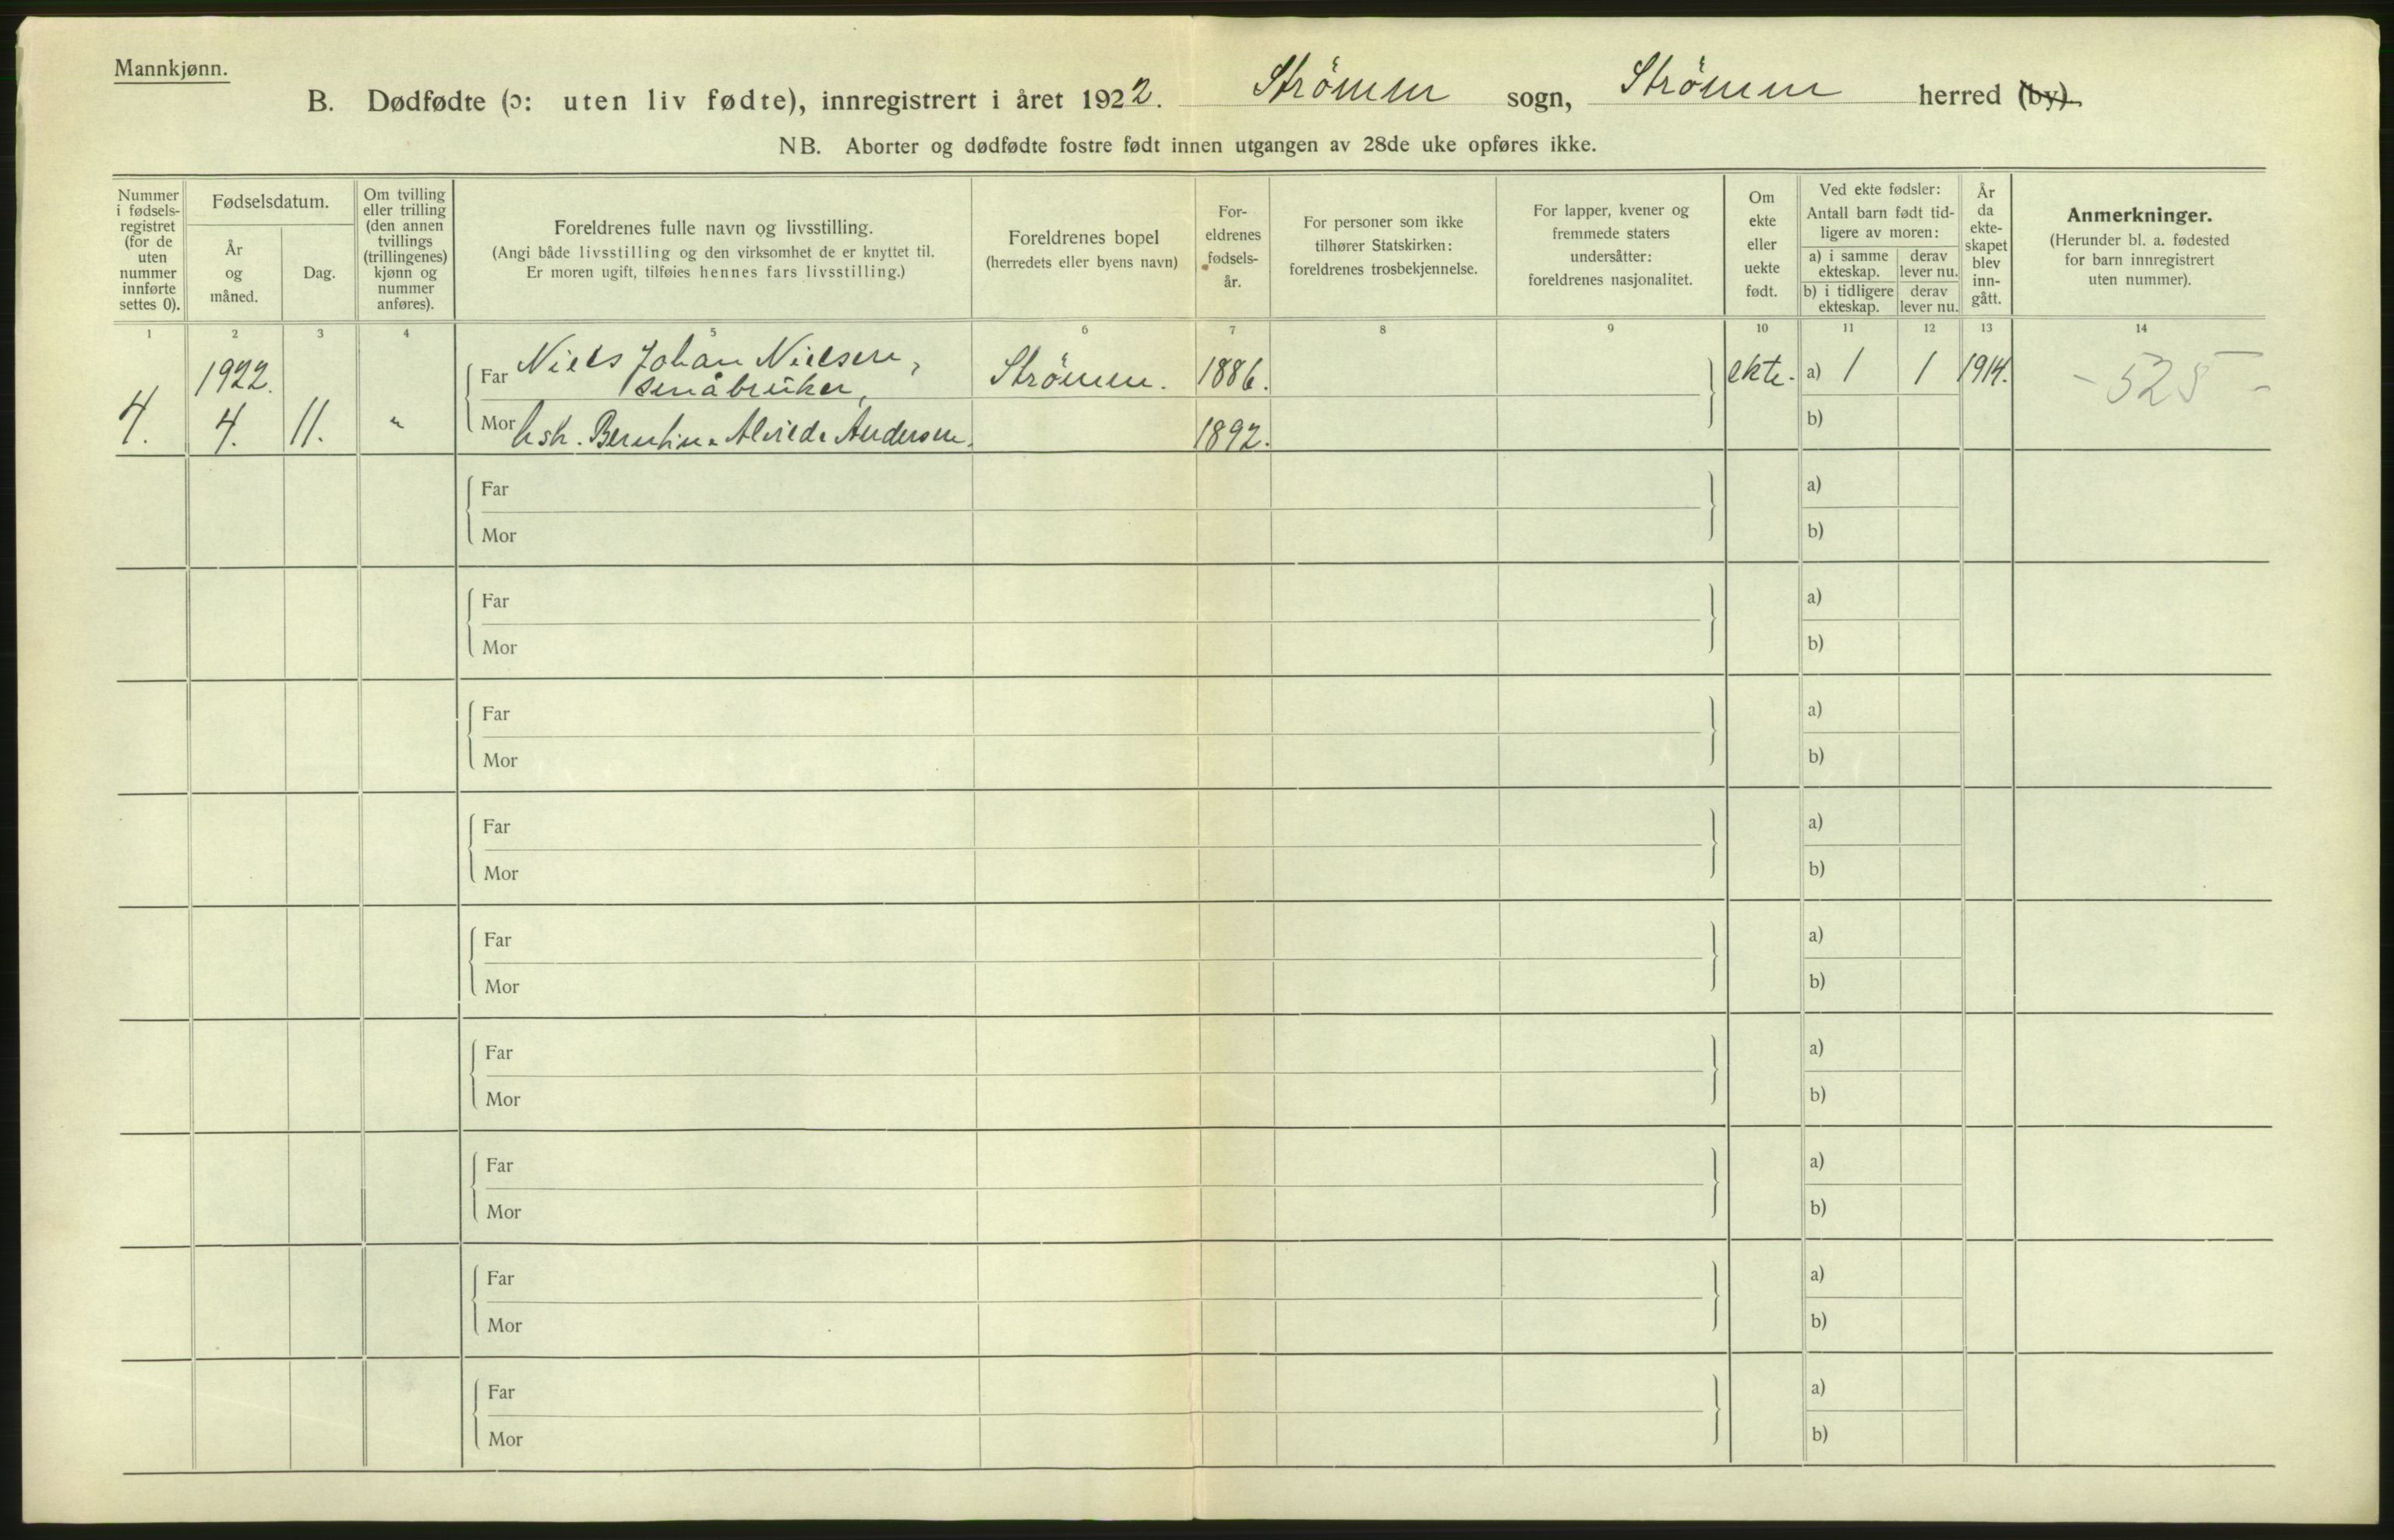 Mannkjønn.
B. Dødfødte (ɔ: uten liv fødte), innregistrert i året 1922. Strömm sogn, Strömm herred (by).
NB. Aborter og dødfødte fostre født innen utgangen av 28de uke opføres ikke.
Nummer
i fødsels-
registret
(for de
uten
nummer
innførte
settes 0).
Fødselsdatum.
År
og
måned.
Dag.
Om tvilling
eller trilling
(den annen
tvillings
(trillingenes)
kjønn og
nummer
anføres).
Foreldrenes fulle navn og livsstilling.
(Angi både livsstilling og den virksomhet de er knyttet til.
Er moren ugift, tilføies hennes fars livsstilling.)
Foreldrenes bopel
(herredets eller byens navn)
For-
eldrenes
fødsels-
år.
For personer som ikke
tilhører Statskirken:
foreldrenes trosbekjennelse.
For lapper, kvener og
fremmede staters
undersåtter:
foreldrenes nasjonalitet.
Om
ekte
eller
uekte
født.
Ved ekte fødsler:
Antall barn født tid-
ligere av moren:
a) i samme
ekteskap.
derav
lever nu.
b) i tidligere
ekteskap.
derav
lever nu.
År
da
ekte-
skapet
blev
inn-
gått.
Anmerkninger.
(Herunder bl. a. fødested
for barn innregistrert
uten nummer).
1 2 3 4 5 6 7 8 9 10 11 12 13 14
1922.
4. 4. 11. "
Far Niels Johan Nielsen,
småbruker,
Strömm. 1886. ekte. a) 1 1 1914. - 525 -
Mor hstr. Berntine Alvilde Andersen. 1892. b)
Far a)
Mor b)
Far a)
Mor b)
Far a)
Mor b)
Far a)
Mor b)
Far a)
Mor b)
Far a)
Mor b)
Far a)
Mor b)
Far a)
Mor b)
Far a)
Mor b)